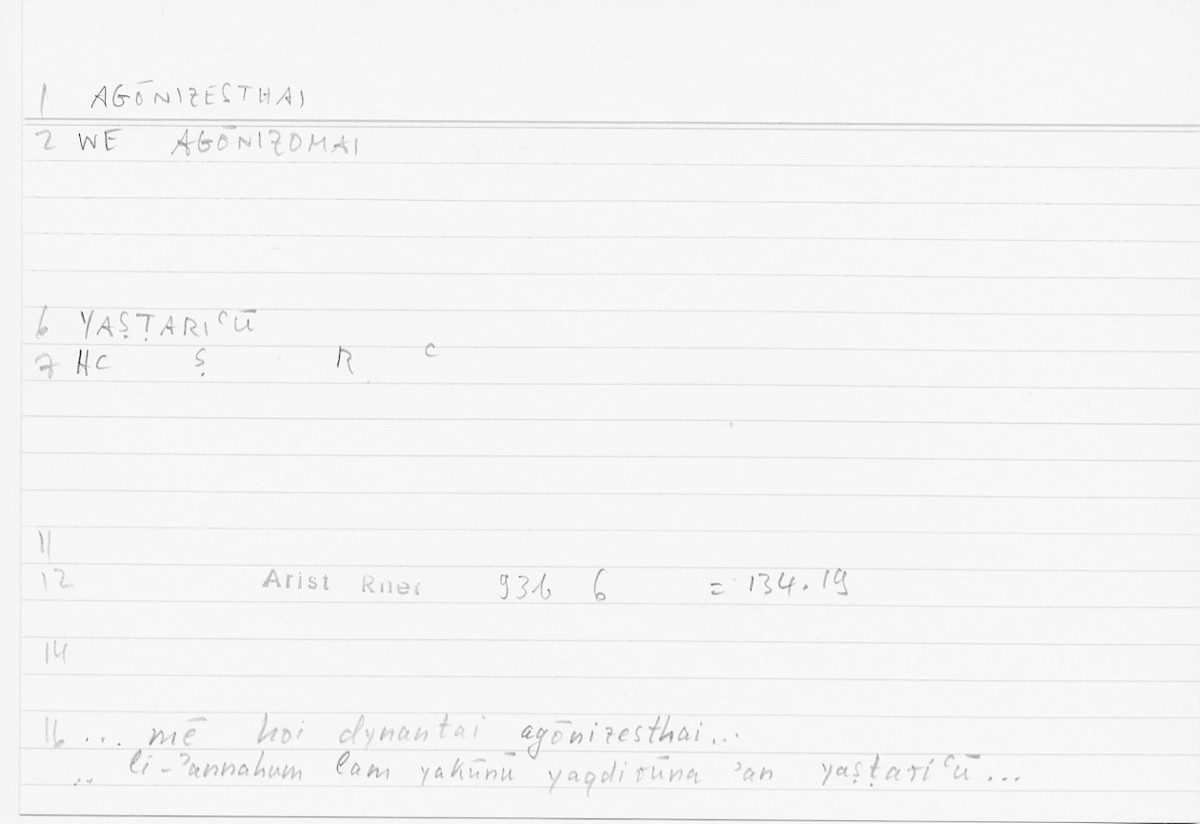 1 AGŌNIZESTHAI
2 WE AGŌNIZOMAI
6 YAṢṬARIʿŪ
7 HC Ṣ R ʿ
11
12 Arist Rhet 93b 6 = 134.19
14
16 ... mē hoi dynantai agōnizesthai...
.. li-ʾannahum lam yakūnū yaqdirūna ʾan yaṣṭariʿū...